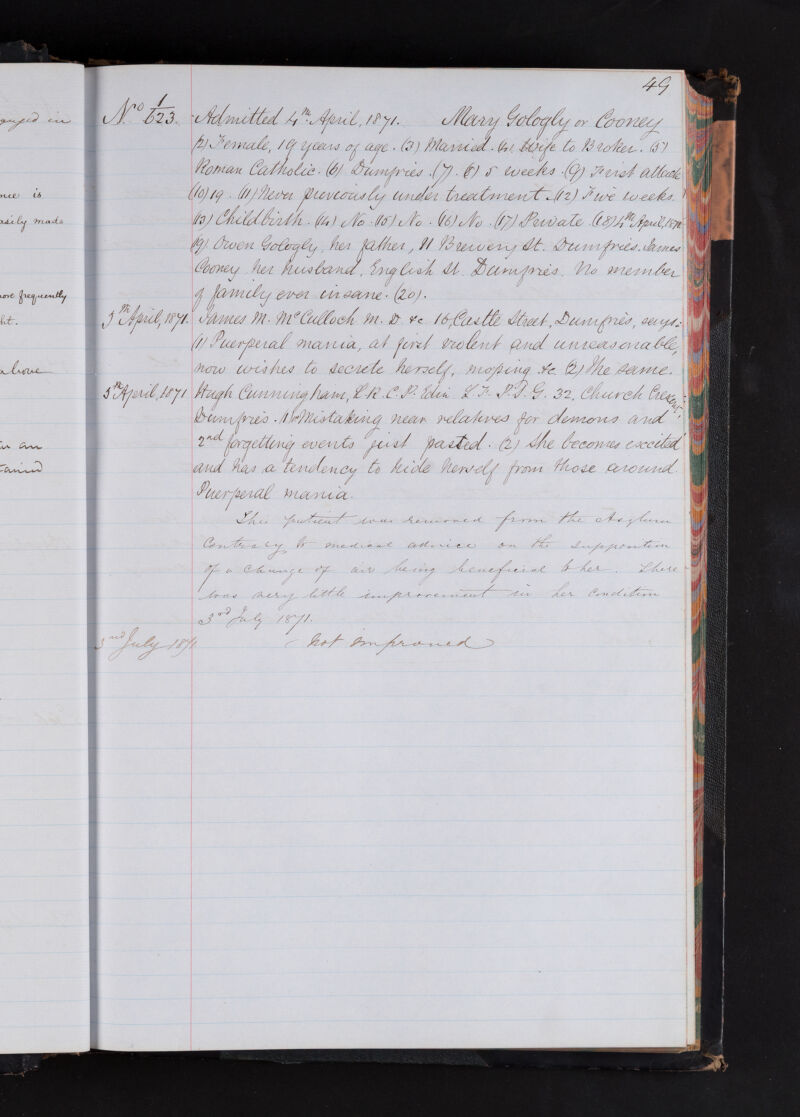 49
No 1/623. Admitted 4th April, 1871. Mary Gologly or Cooney
(2) Female, 19 years of age. (3) Married. (4) Wife to Broker. (5)
Roman Catholic. (6) Dumfries. (7). (8) 5 weeks. (9) First attack
(10) 19. (11) Never previously under treatment. (12) Five weeks.
(13) Childbirth. (14) No. (15) No. (16) No. (17) Private. (18) 4th April, 1871
(19) Owen Gologly, her father, 11 Brewery St. Dumfries. James
Cooney her husband, English St. Dumfries. No member
of family ever insane. (20).
5th April, 1871. James M. McCulloch M. D &c 16, Castle Street, Dumfries, says:
(1) Puerperal mania, at first violent and unreasonable,
now wishes to secrete herself, moping &c. (2) The same.
5th April, 1871 Hugh Cunningham, L.R.C.P. Edin L. F. P.S.G. 32, Church Crescent,
Dumfries. Mistaking near relatives for demons and
2nd forgetting events just passed. (2) She becomes excited
and has a tendency to hide herself from those around.
Puerperal mania.
This patient was removed from the Asylum
contrary to medical advice on the supposition
of a change of air being beneficial to her. There
was very little improvement in her condition
3rd July 1871.
3rd July 1871 Not improved
ouged in
nce is
asily made
more frequently
ht.
above
tes an
tained